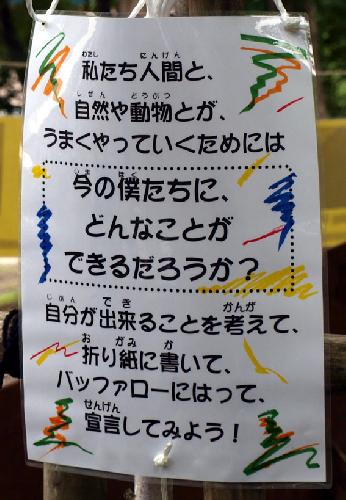 私たち人間と、
自然や動物とが、
うまくやっていくためには
今の僕たちに、
どんなことが
できるだろうか?
自分が出来ることを考えて、
折り紙に書いて、
バッファローにはって、
宣言してみよう!